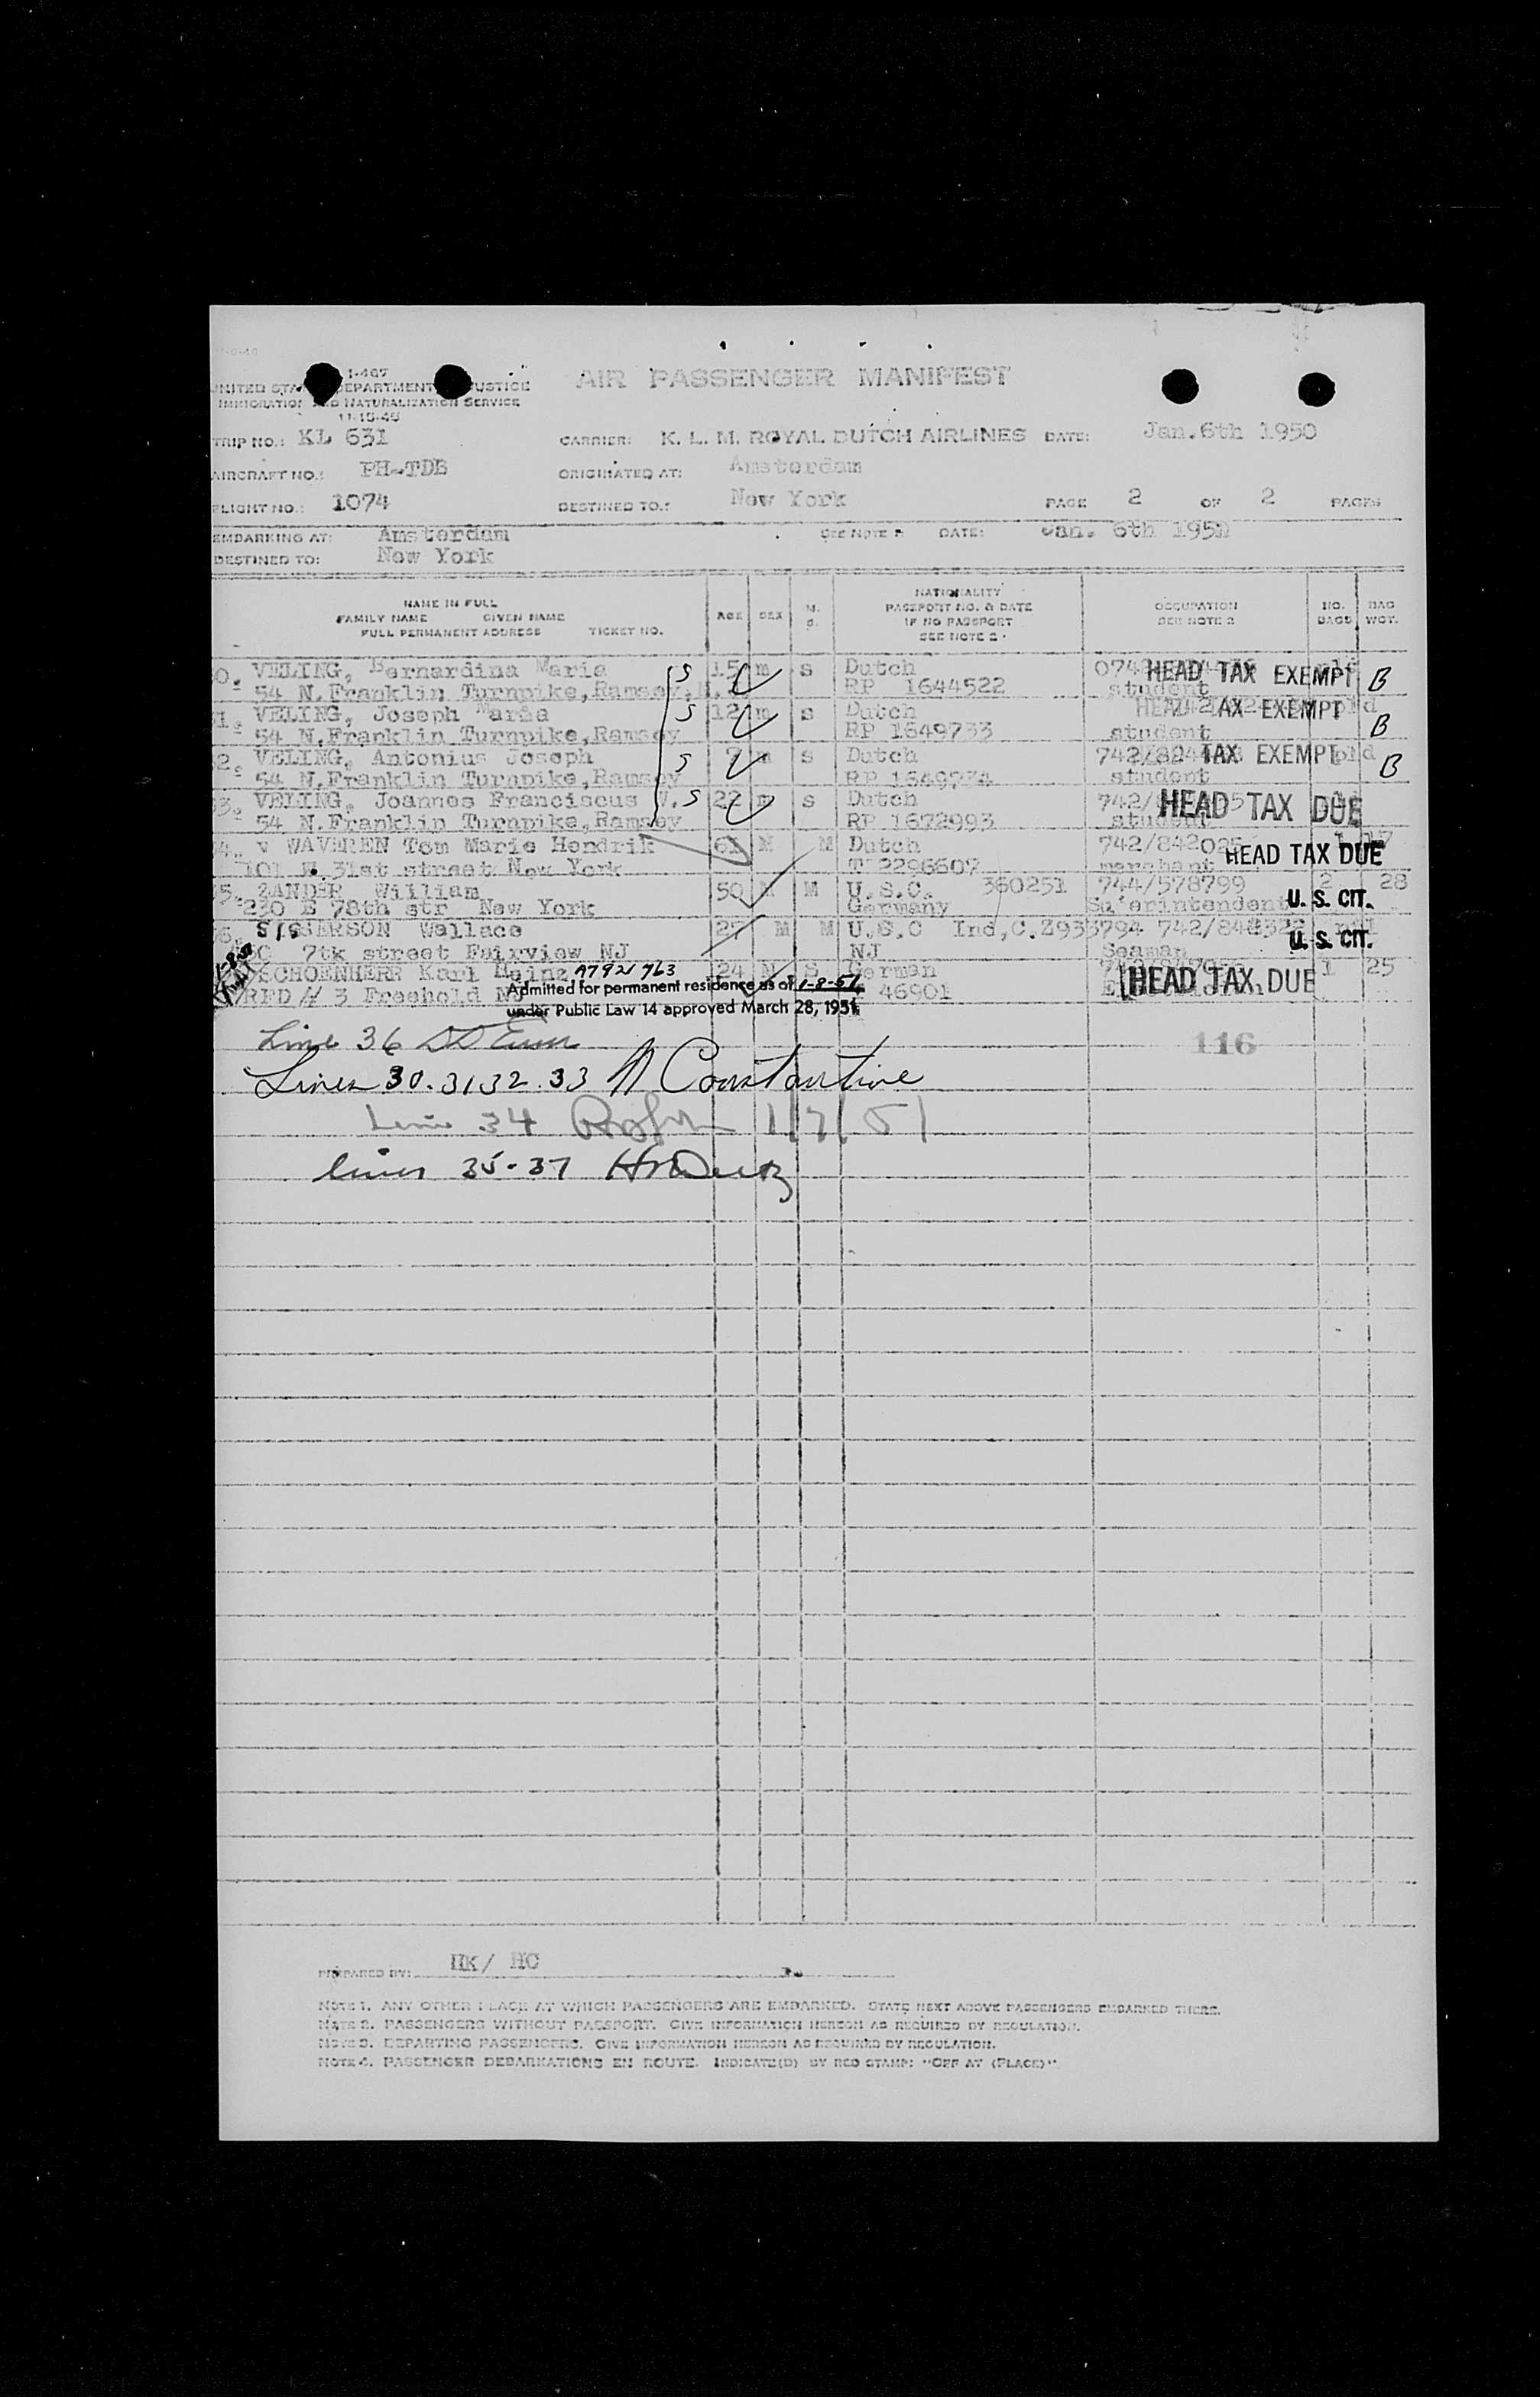 I-467
UNITED STA DEPARTMENT JUSTICE
IMMIGRATION AND NATURALIZATION SERVICE
11-15-45
AIR PASSENGER MANIFEST
TRIP NO.: KL 631 CARRIER: K. L. M. ROYAL DUTCH AIRLINES DATE: Jan.6th 1950
AIRCRAFT NO.: PH-TDB ORIGINATED AT: Amsterdam
FLIGHT NO.: 1074 DESTINED TO.: New York PAGE 2 OF 2 PAGES
EMBARKING AT: Amsterdam SEE NOTE DATE: Jan. 6th 195
DESTINED TO: New York
NAME IN FULL
FAMILY NAME GIVEN NAME
FULL PERMANENT ADDRESS TICKET NO.
AGE SEX M. S.
NATIONALITY
PASSPORT NO. & DATE
IF NO PASSPORT
SEE NOTE 2
OCCUPATION
SEE NOTE 2
NO. BAGS BAG WGT.
0. VELING, Bernardina Maria S 15 m s Dutch HEAD TAX EXEMPT B
54 N.Franklin Turnpike,Ramsey, RP 1644522 student
1. VELING, Joseph Maria S 12 m s Dutch HEAD TAX EXEMPT
54 N.Franklin Turnpike,Ramsey RP 1649733 student B
2. VELING, Antonius Joseph S 7 m s Dutch TAX EXEMPT
54 N.Franklin Turnpike,Ramsey RP 1649734 student B
3. VELING, Joannes Franciscus W. S 22 m s Dutch HEAD TAX DUE
54 N.Franklin Turnpike,Ramsey RP 1672993 student
4. v WAVEREN Tom Marie Hendrik 61 M M Dutch 742/842025 1 17
101 E. 31st street New York T 2296607 merchant HEAD TAX DUE
5. ZANDER William 50 M M U.S.C. 360251 744/578799 2 28
230 E 78th str New York Germany Su'erintendent U. S. CIT.
SERSON Wallace 27 M M U.S.C Ind,C.Z933794
street Fairview NJ NJ Seaman U. S. CIT.
SCHOENHERR Karl Heinz A7921763 24 M S German HEAD TAX DUE 1 25
RFD # 3 Freehold NJ 46901
Admitted for permanent residence as of 1-8-51
under Public Law 14 approved March 28, 1951.
Line 36
116
Lines 30.31 32.33 N Constantine
Line 34 1/7/51
lines 35-37
PREPARED BY: HK/ HC
NOTE 1. ANY OTHER PLACE AT WHICH PASSENGERS ARE EMBARKED. STATE NEXT ABOVE PASSENGERS EMBARKED THERE.
NOTE 2. PASSENGERS WITHOUT PASSPORT. GIVE INFORMATION HEREON AS REQUIRED BY REGULATION.
NOTE 3. DEPARTING PASSENGERS. GIVE INFORMATION HEREON AS REQUIRED BY REGULATION.
NOTE 4. PASSENGER DEBARKATIONS EN ROUTE. INDICATE(D) BY RED STAMP: "OFF AT (PLACE)".